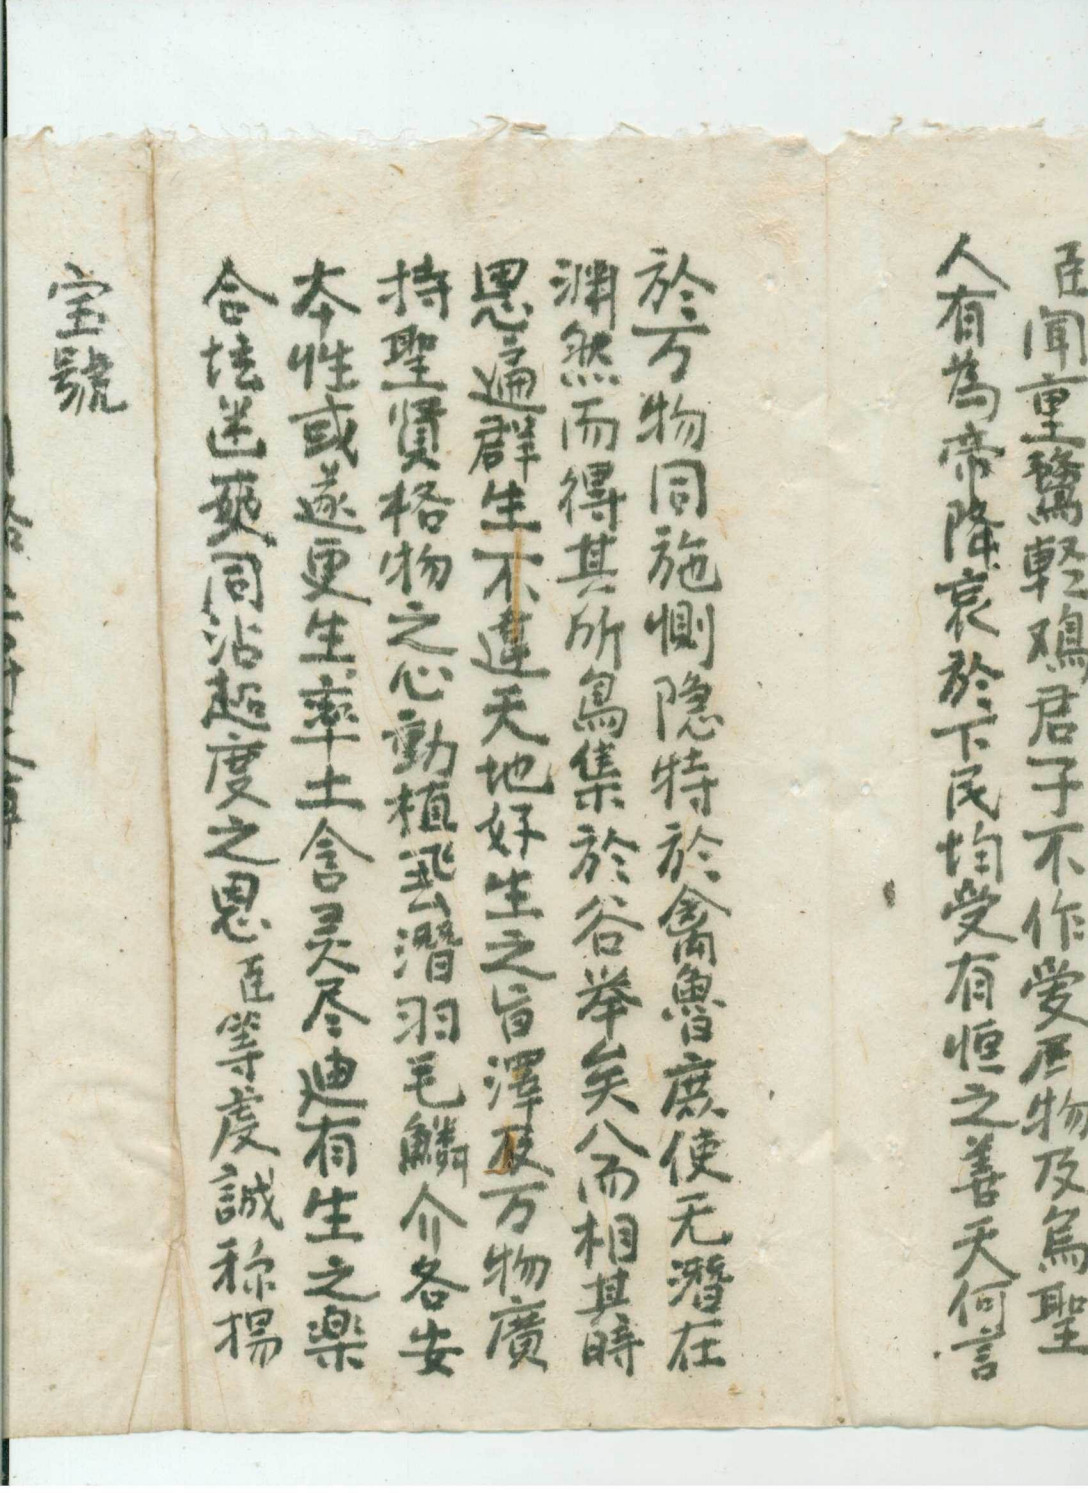 臣闻重鷖輊鳮君子不作爱居物及烏聖
人有為帝降衷於下民均受有恒之善天何言
於万物同施惻隐特於禽魯庶使无潛在
渊然而得其所鳥集於谷举矣八而相其時
恩遍群生不違天地好生之旨澤及万物廣
持聖賢格物之心動植飛潛羽毛鱗介各安
本性或遂更生率土含灵尽迪有生之樂
合坛迷爽同沾超度之恩臣等虔誠称揚
宝號